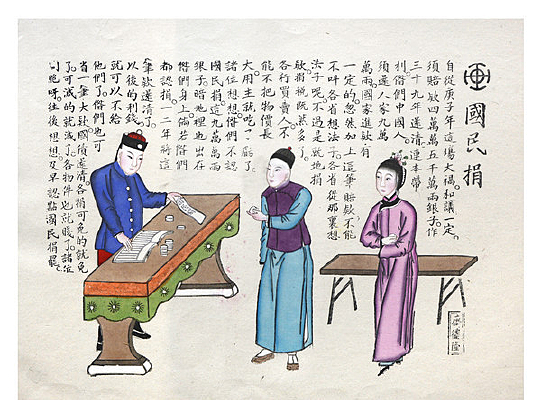 國民捐
自從庚子年這場大禍和議一定。
須賠欵四萬萬五千萬兩銀子。作
三十九年還清。連本帶
利偺們中國人。
須還人家九萬
萬兩。國家進欵有
一定的。忽然加上這筆賠欵。不能
不叫各省想法子。各省從那裏想
法子呢。不過是就地捐
欵。捐稅既然多了。
各行買賣人。不
能不把物價長
大。用主就吃了虧了。
諸位想想。偺們不認
國民捐。這九萬萬兩
銀子。暗地裡也出在
偺們身上。倘若偺們
都認捐。一二年將這
筆欵還清了。
以後的利錢。
就可以不給
他們了。偺們也可
省一筆大欵。國債還清。各捐可免的就免
了。可減的就減了。各物件也就賤了。諸位
同胞呀。往後想想。及早認點國民捐罷。